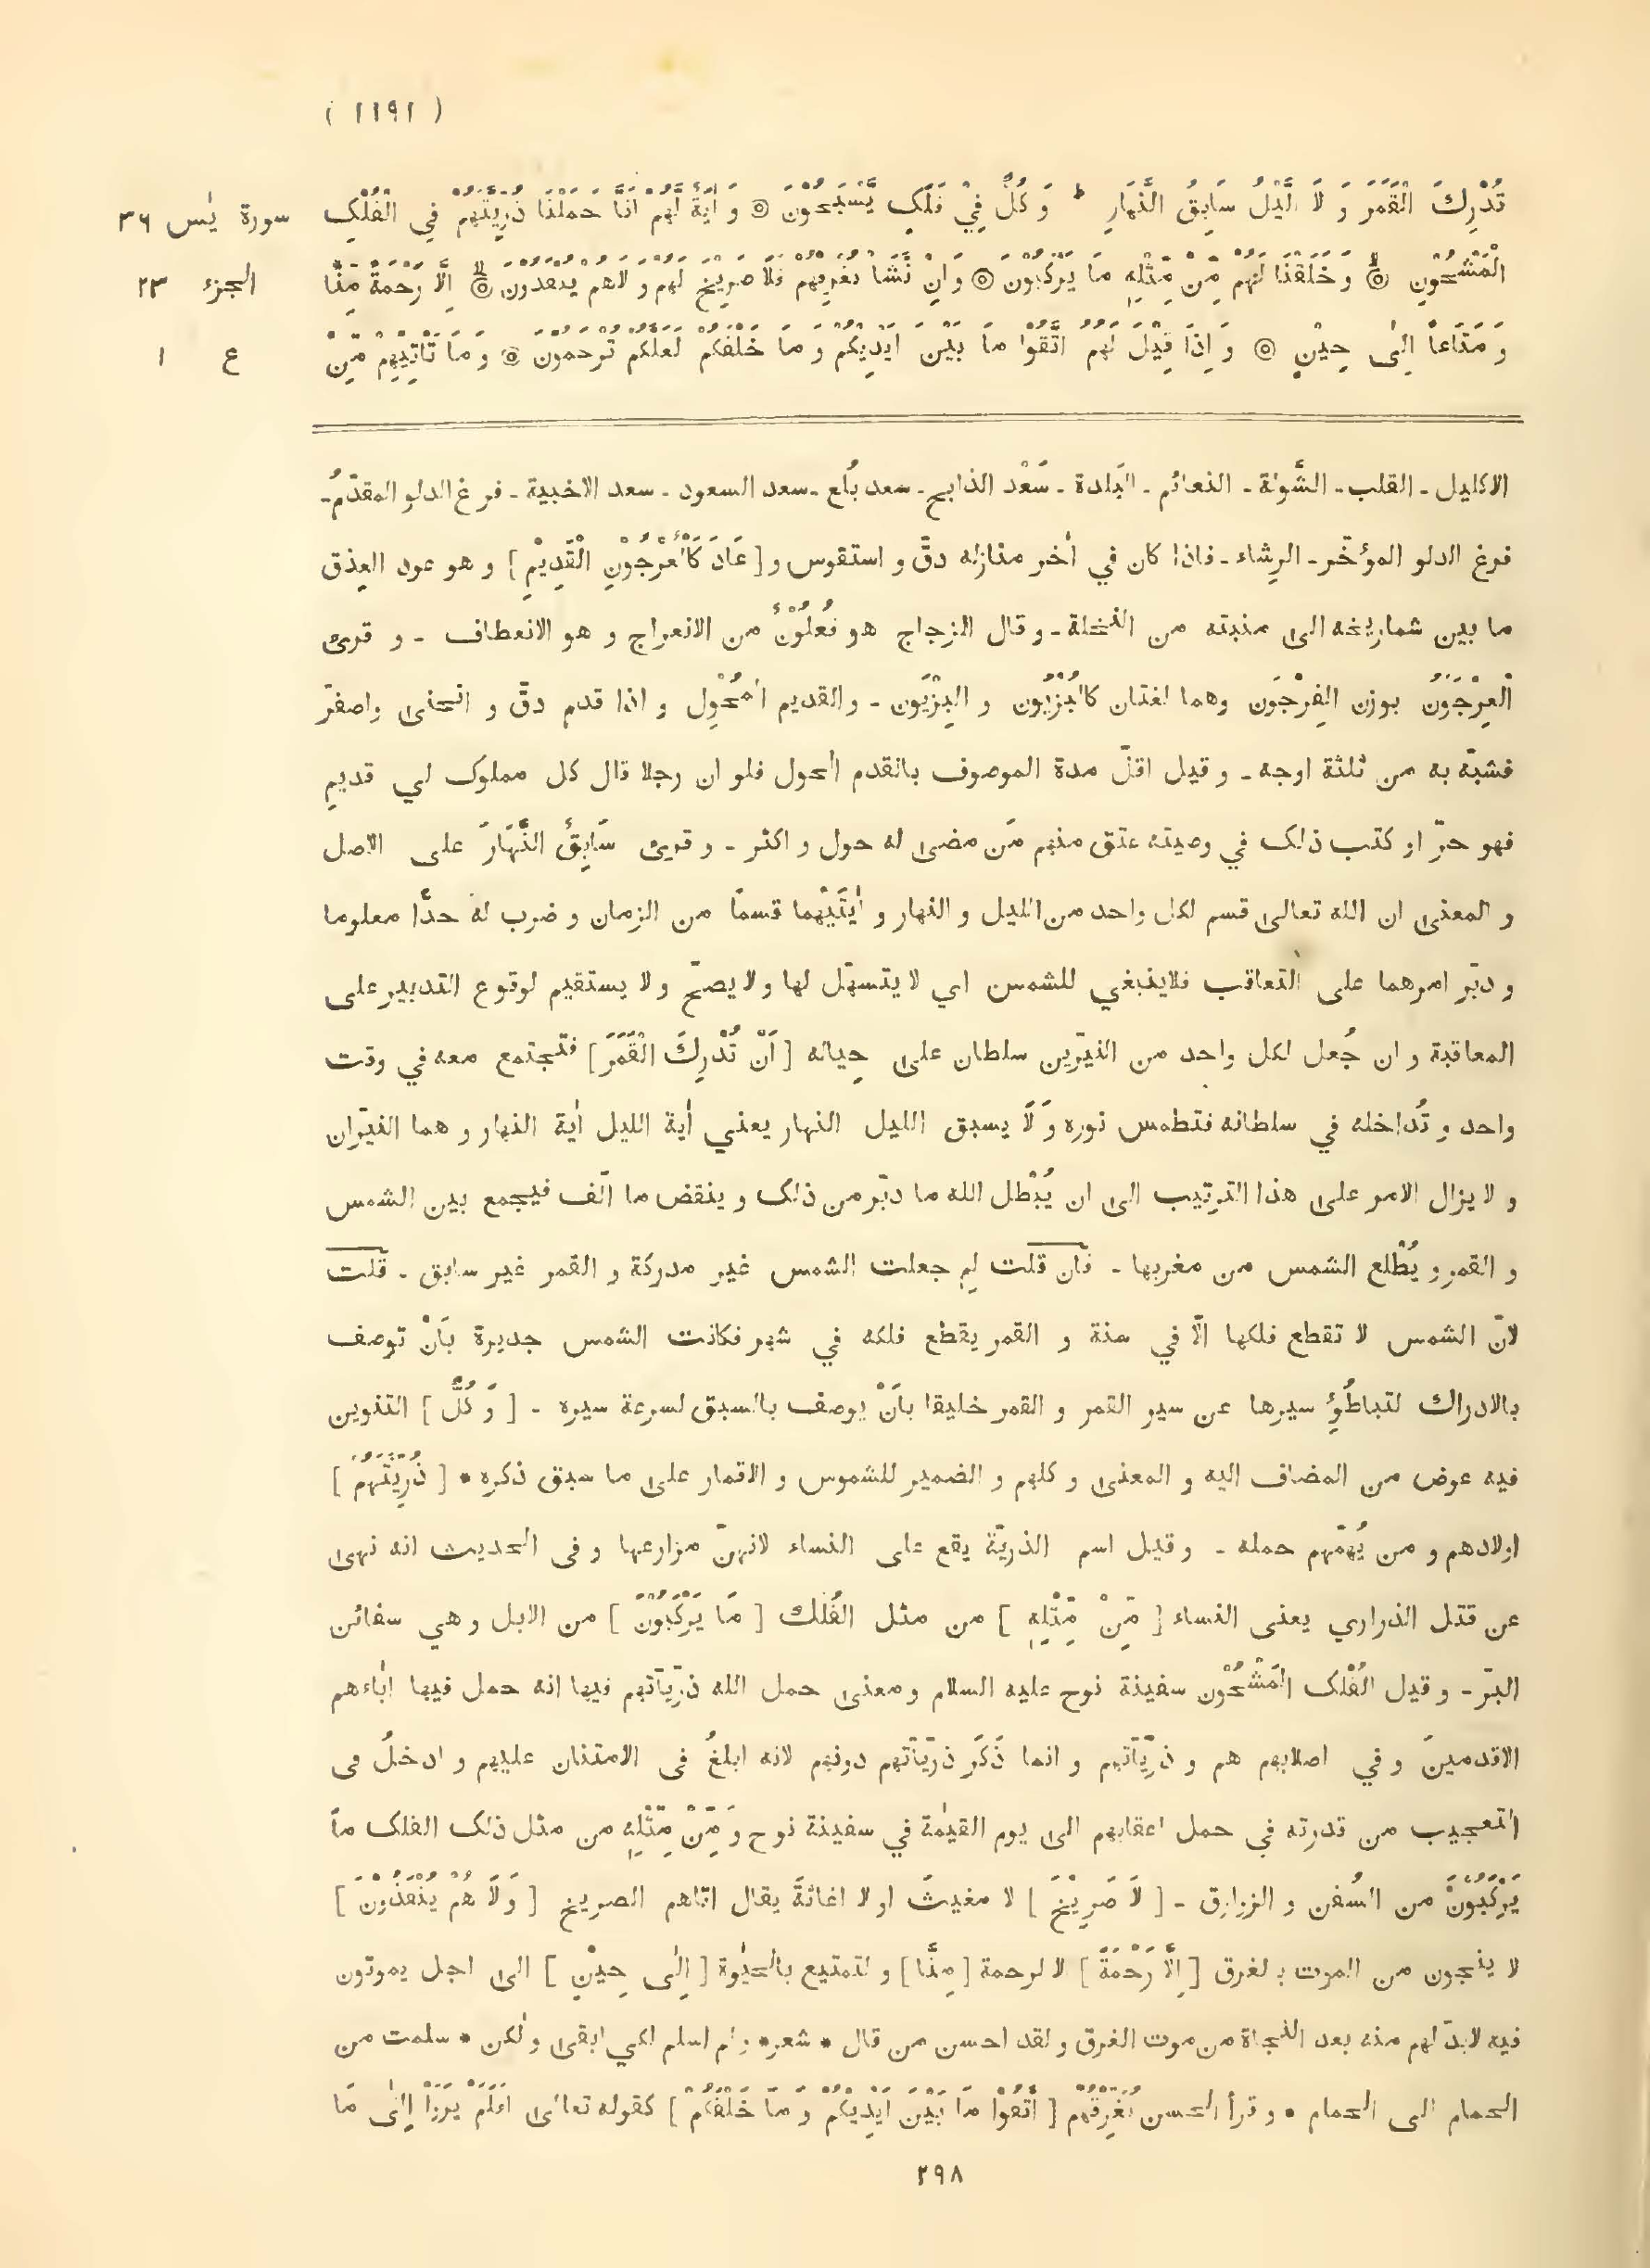 ( ١١٩١ )
تُدْرِكَ الْقَمَرَ وَ لَا الَّيْلُ سَابِقُ النَّهَارِ ط وَ كُلٌّ فِيْ فَلَكٍ يَّسْبَحُوْنَ ۞ وَ اٰيَةٌ لَّهُمْ اَنَّا حَمَلْنَا ذُرِّيَّتَهُمْ فِي الْفُلْكِ سورة يٰس ٣٦
الْمَشْحُوْنِ ۞ وَ خَلَقْنَا لَهُمْ مِّنْ مِّثْلِهٖ مَا يَرْكَبُوْنَ ۞ وَ اِنْ نَّشَاْ نُغْرِقْهُمْ فَلَا صَرِيْخَ لَهُمْ وَ لَاهُمْ يُنْقَذُوْنَ ۞ اِلَّا رَحْمَةً مِّنَّا الجزء ٢٣
وَ مَتَاعاً اِلٰى حِيْنٍ ۞ وَ اِذَا قِيْلَ لَهُمُ اتَّقُوْا مَا بَيْنَ اَيْدِيْكُمْ وَ مَا خَلْفَكُمْ لَعَلَّكُمْ تُرْحَمُوْنَ ۞ وَ مَا تَاْتِيْهِمْ مِّنْ ع ١
الاكليل - القلب - الشَّوْلة - النعائم - البَلدة - سَعْد الذابح - سعد بُلَع - سعد السعود - سعد الاخبية - فرغ الدلو المقدّمُ -
فرغ الدلو المؤخّر - الرِشاء - فاذا كان في اٰخر منازله دقّ و استقوس و [ عَادَ كَالْعُرْجُوْنِ الْقَدِيْمِ ] و هو عود العِذق
ما بين شماريخه الى منبته من النخلة - و قال الزجاج هو فُعْلُوْنٌ من الانعراج و هو الانعطاف - و قرئ
الْعِرْجَوْنُ بوزن الفِرْجَون وهما لغتان كالبُزْيُون و البِزْيَون - والقديم المُحْوِل و اذا قدم دقّ و انحنى واصفرّ
فشبّه به من ثلثة اوجه - و قيل اقلّ مدة الموصوف بالقدم الحول فلو ان رجلا قال كل مملوك لي قديمٍ
فهو حرّ او كتب ذلك في وصيته عتق منهم مَن مضى له حول و اكثر - و قرئ سَابِقٌ النَّهَارَ على الاصل
و المعنى ان الله تعالى قسم لكل واحد من الليل و النهار و اٰيتَيْهما قسماً من الزمان و ضرب له حدًّا معلوما
و دبّر امرهما على التعاقب فلاينبغي للشمس اي لا يتسهّل لها ولا يصحّ ولا يستقيم لوقوع التدبير على
المعاقبة و ان جُعل لكل واحد من النيّرين سلطان على حِياله [ اَنْ تُدْرِكَ الْقَمَرَ ] فتجتمع معه في وقت
واحد و تُداخله في سلطانه فتطمس نوره وَ لَا يسبق الليل النهار يعني اٰية الليل اٰية النهار و هما النيّران
و لا يزال الامر على هذا الترتيب الى ان يُبْطل الله ما دبّر من ذلك و ينقض ما الّف فيجمع بين الشمس
و القمر و يُطْلع الشمس من مغربها - فان قلت لِم جعلت الشمس غير مدركة و القمر غير سابق - قلت
لانّ الشمس لا تقطع فلكها الّا في سنة و القمر يقطع فلكه في شهر فكانت الشمس جديرة باَنْ توصف
بالادراك لتباطُؤِ سيرها عن سير القمر و القمر خليقا باَنْ يوصف بالسبق لسرعة سيره - [ وَ كُلٌّ ] التنوين
فيه عوض من المضاف اليه و المعنى و كلهم و الضمير للشموس و الاقمار على ما سبق ذكره • [ ذُرِّيَّتَهُمْ ]
اولادهم و من يُهمّهم حمله - و قيل اسم الذريّة يقع على النساء لانهنّ مزارعها و فى الحديث انه نهى
عن قتل الذراري يعنى النساء [ مِّنْ مِّثْلِهٖ ] من مثل الفُلك [ مَا يَرْكَبُوْنَ ] من الابل و هي سفائن
البرّ - و قيل الفُلْك المَشْحُوْن سفينة نوح عليه السلام و معنى حمل الله ذرّيّاتهم فيها انه حمل فيها اٰباءهم
الاقدمينَ و في اصلابهم هم و ذرّيّاتهم و انما ذَكَر ذرّيّاتهم دونهم لانه ابلغُ فى الامتنان عليهم و ادخلُ فى
التعجيب من قدرته في حمل اعقابهم الى يوم القيٰمة في سفينة نوح وَ مِّنْ مِّثْلِهٖ من مثل ذلك الفلك مَا
يَرْكَبُوْنَ من السُفن و الزوارق - [ لَا صَرِيْخَ ] لا مغيثَ او لا اغاثةَ يقال اتاهم الصريخ [ وَ لَا هُمْ يُنْقَذُوْنَ ]
لا ينجون من الموت بالغرق [ اِلَّا رَحْمَةً ] الا لرحمة [ مِنَّا ] و لتمتيع بالحيٰوة [ اِلٰى حِيْنٍ ] الى اجل يموتون
فيه لابدّ لهم منه بعد النجاة من موت الغرق و لقد احسن من قال • شعر • ولم اسلم لكي ابقى ولٰكن • سلمت من
الحمام الى الحمام • و قرأ الحسن نُغَرِّقْهُمْ [ اتَّقُوْا مَا بَيْنَ اَيْدِيْكُمْ وَ مَا خَلْفَكُمْ ] كقوله تعالى اَفَلَمْ يَرَوْا اِلٰى مَا
٢٩٨